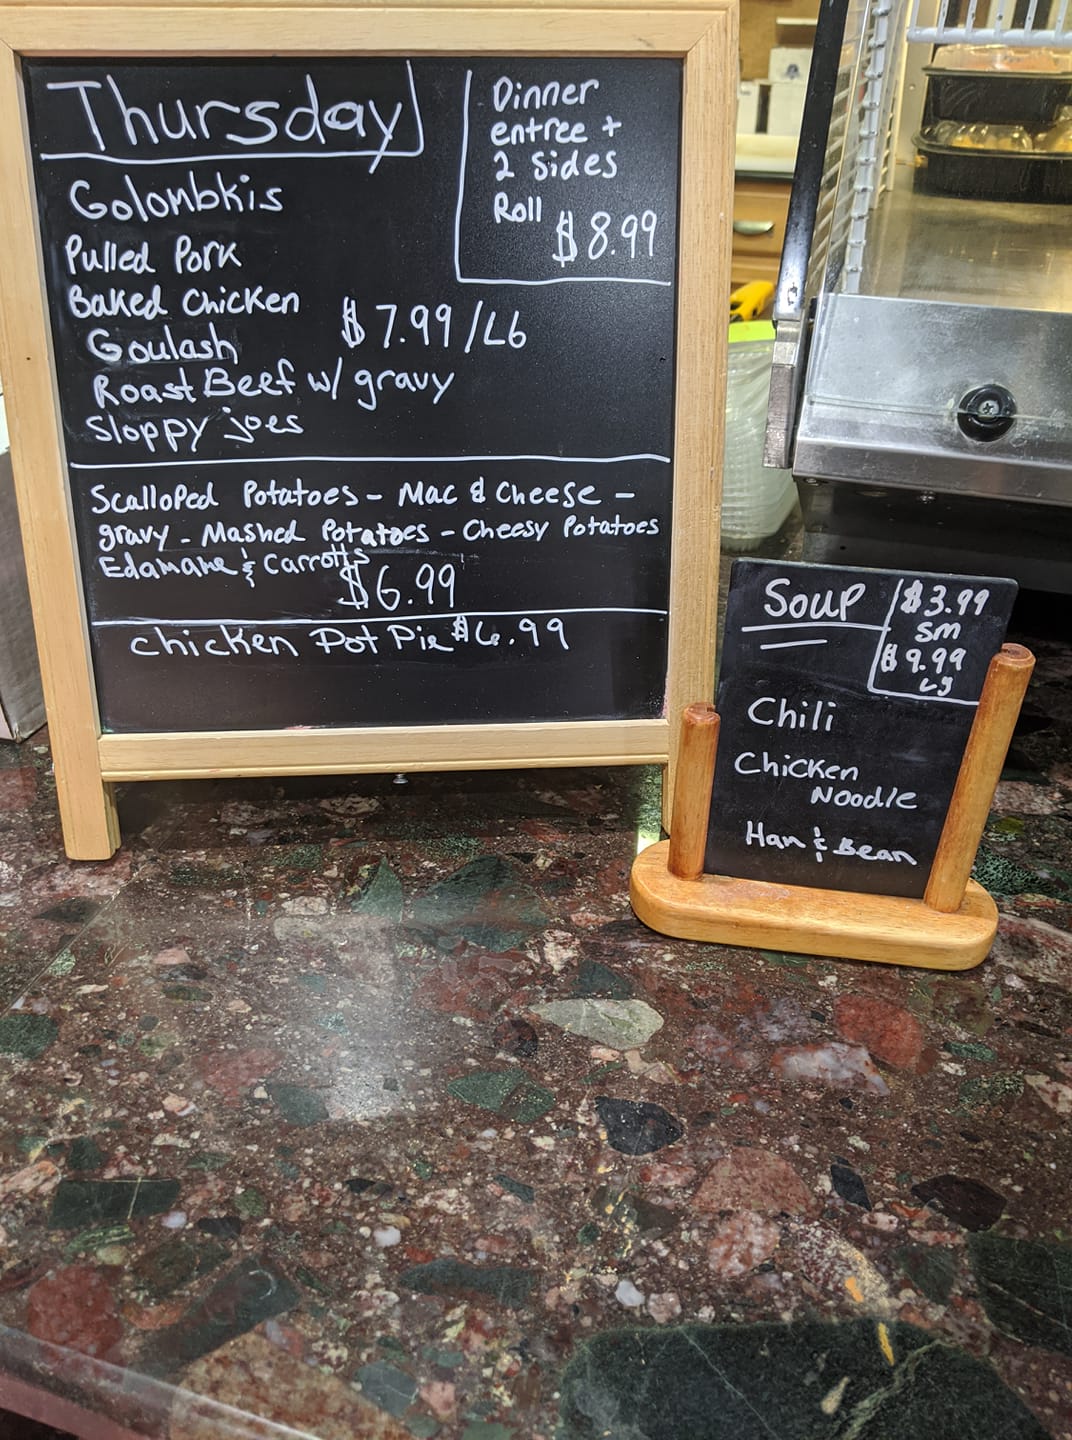 Thursday
Golombkis
Pulled Pork
Baked Chicken
Goulash
Roast Beef w/ gravy
Sloppy joes
$7.99/Lb
Dinner
entree +
2 Sides
Roll
$8.99
Scalloped Potatoes - Mac & Cheese -
gravy - Mashed Potatoes - Cheesy Potatoes
Edamame & Carrotts
$6.99
Chicken Pot Pie $6.99
Soup
$3.99
sm
$9.99
Lg
Chili
Chicken
Noodle
Ham & Bean